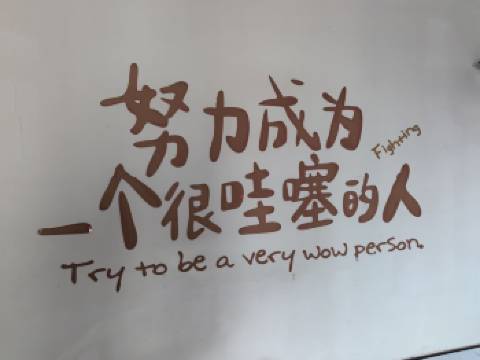 努力成为
Fighting
一个很哇塞的人
Try to be a very wow person.